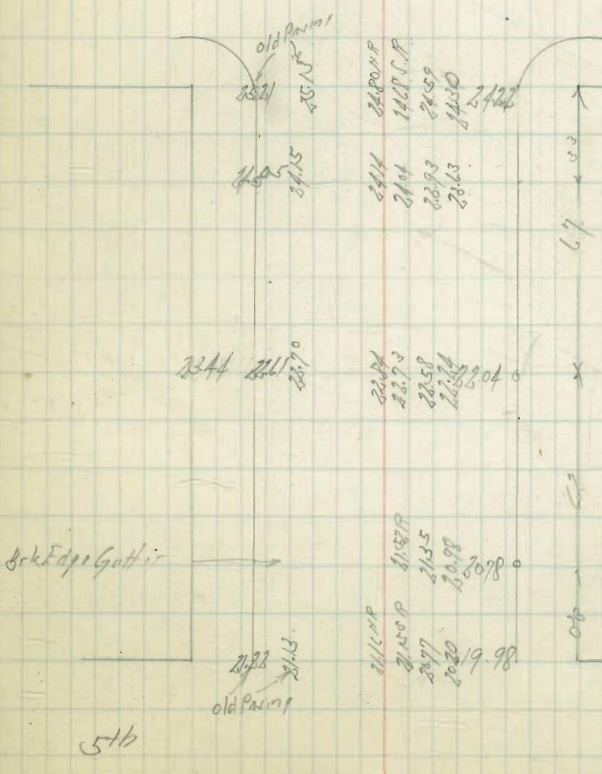 old Pavmt
25.21 25.13 24.80 N.R 24.68 S.R 24.59 24.30 24.22
24.15 24.14 24.04 23.93 23.63
33
67
23.44 22.61 22.70 22.84 22.73 22.58 22.24 22.04
67
Brk Edge Gutter
21.52 R 21.35 20.98 20.78
21.22 21.13 21.16 N.R 21.15 S.R 20.77 20.20 19.98
old Pavmt
5th